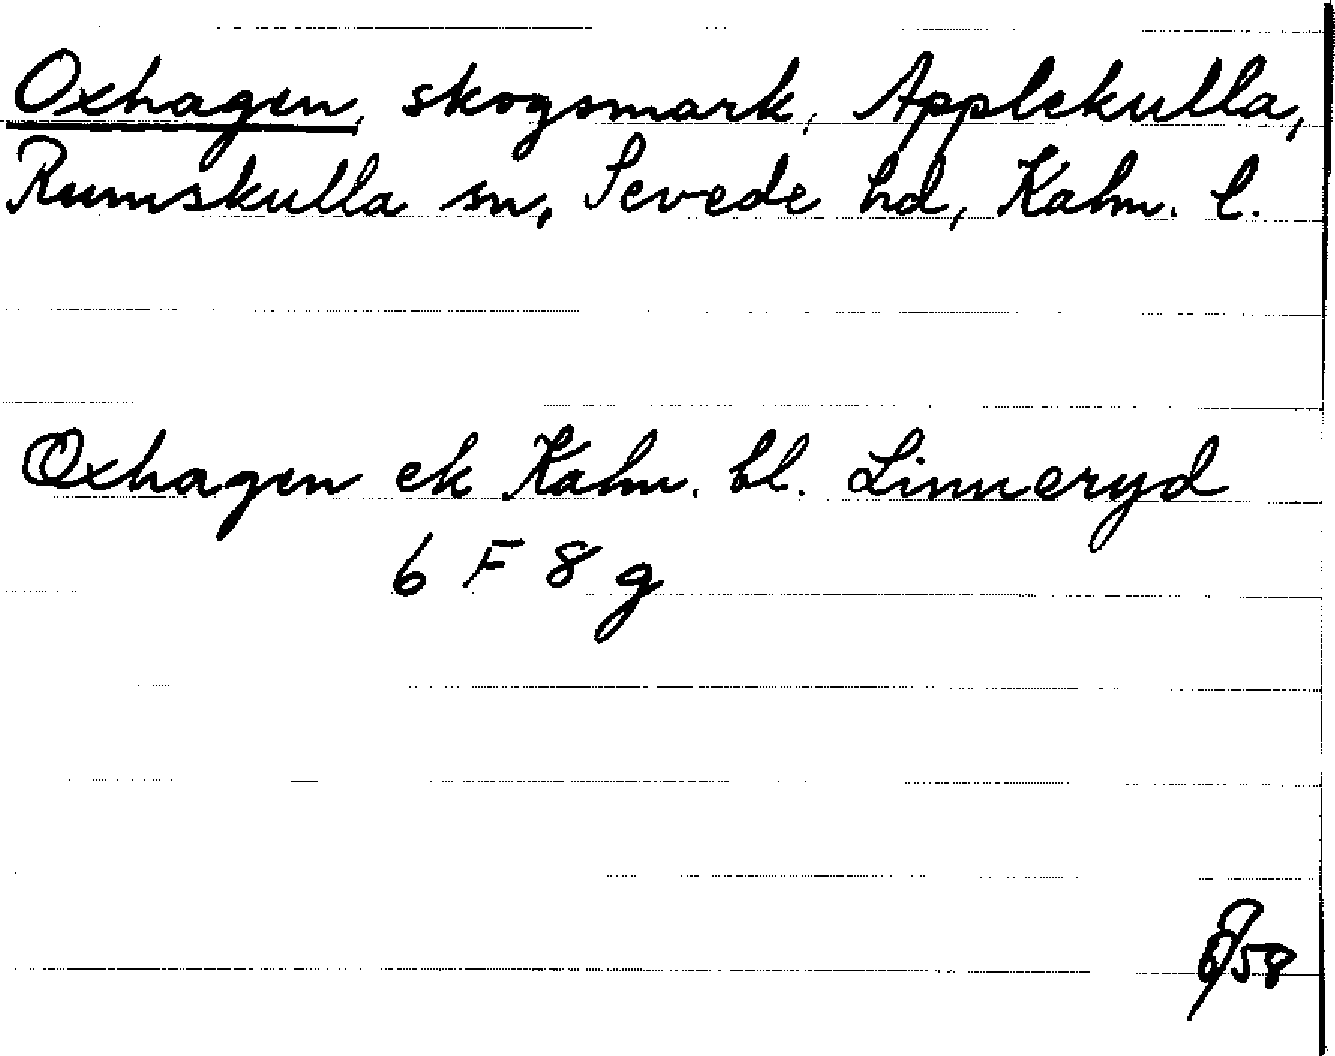 Oxhagen, skogsmark, Applekulla,
Rumskulla sn, Sevede hd, Kalm. l.
Oxhagen ek Kalm. bl. Linneryd
6 F 8 g
58